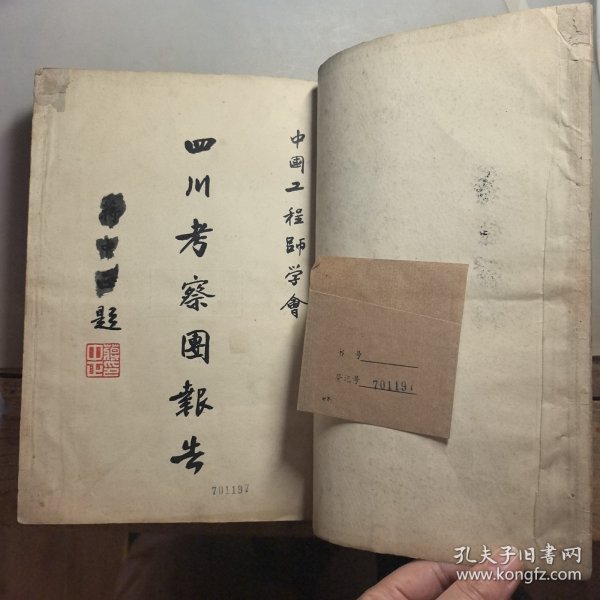 中國工程師学會
四川考察團報告
題
701197
书号
登记号 701197
孔夫子旧书网
www.kongfz.com